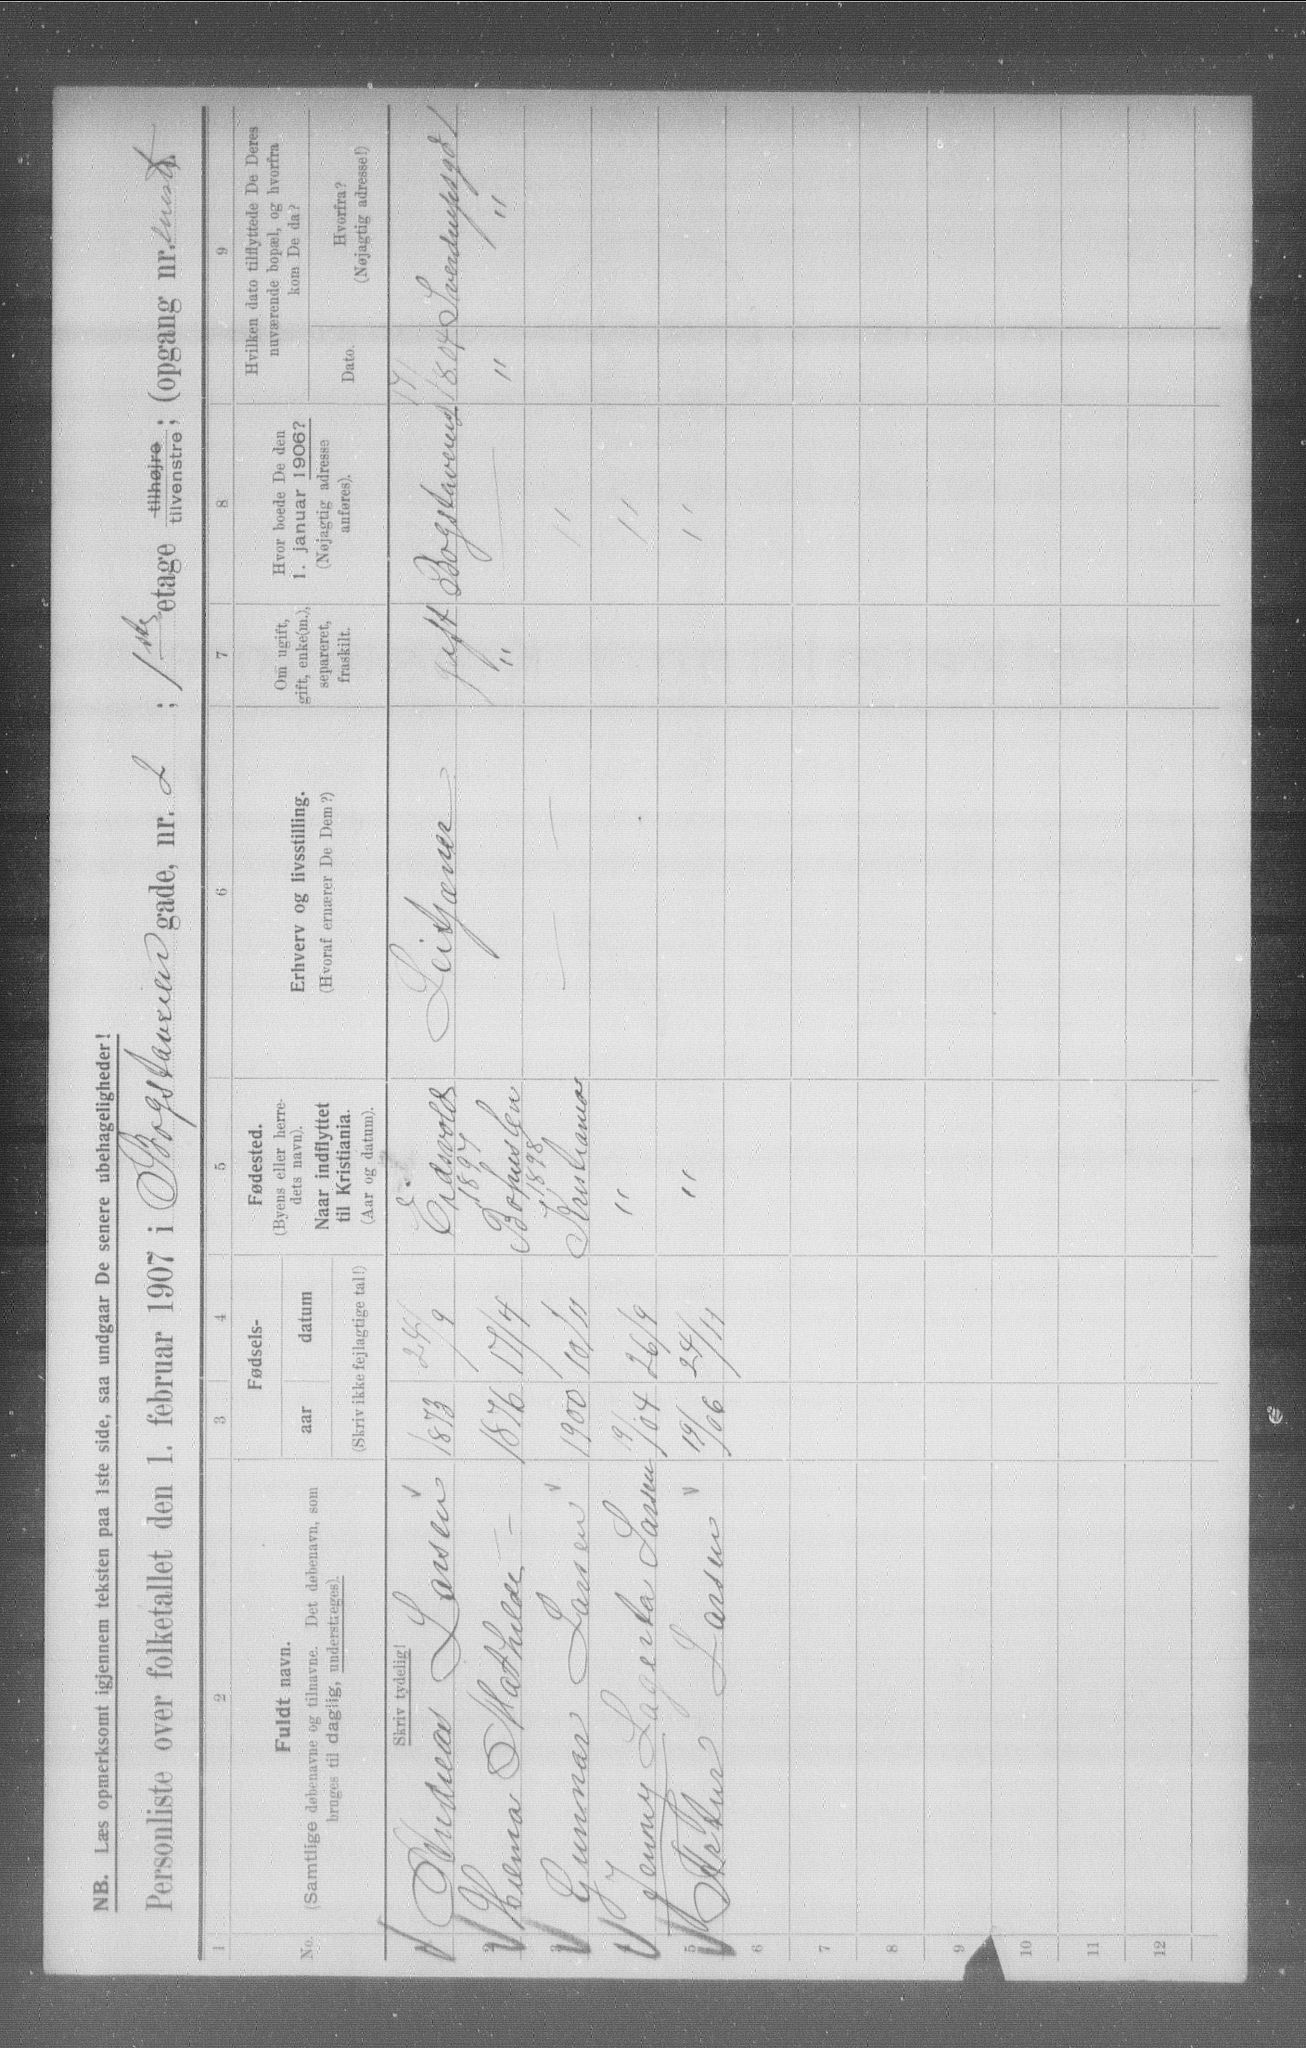 NB. Læs opmerksomt igjennem teksten paa 1ste side, saa undgaar De senere ubehageligheder!
Personliste over folketallet den 1. februar 1907 i Bogstaveien gade, nr. 2 ; 1ste etage tilhøjre tilvenstre; (opgang nr.
1 2 3 4 5 6 7 8 9
No.
Fuldt navn.
(Samtlige døbenavne og tilnavne. Det døbenavn, som
bruges til daglig, understreges).
Skriv tydelig!
Fødsels-
aar datum
(Skriv ikke fejlagtige tal!)
Fødested.
(Byens eller herre-
dets navn).
Naar indflyttet
til Kristiania.
(Aar og datum).
Erhverv og livsstilling.
(Hvoraf ernærer De Dem?)
Om ugift,
gift, enke(m.),
separeret,
fraskilt.
Hvor boede De den
1. januar 1906?
(Nøjagtig adresse
anføres).
Hvilken dato tilflyttede De Deres
nuværende bopæl, og hvorfra
kom De da?
Dato.
Hvorfra?
(Nøjagtig adresse!)
Andreas Larsen 1873 24/9 Eidsvold 1897 gift Bogstaveien
2 Mathilde — 1876 17/4 1898 " — " "
3 Gunnar Larsen 1900 10/11 Kristiania — — "
Jenny Lagerta Larsen 19/04 26/9 " "
5 Artur Larsen 19/06 24/11 " "
6
7
8
9
10
11
12